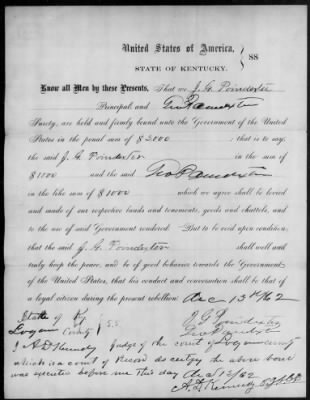 United States of America,
STATE OF KENTUCKY. } SS
Know all Men by these Presents, That we J. G. Poindexter
Principal, and Geo Poindexter
Surety, are held and firmly bound unto the Government of the United
States in the penal sum of $2000 : that is to say;
the said J. G. Poindexter in the sum of
$1000 and the said Geo Poindexter
in the like sum of $1000 which we agree shall be levied
and made of our respective lands and tenements, goods and chattels, and
to the use of said Government rendered. But to be void upon condition,
that the said J. G. Poindexter shall well and
truly keep the peace, and be of good behavior towards the Government
of the United States, that his conduct and conversation shall be that of
a legal citizen during the present rebellion. Dec 13th/62
State of Ky J G Poindexter
Logan County } S.S. Geo Poindexter
I A. D. Kennedy Judge of the court of Logan county
which is a court of Record do certify the above bond
was executed before me this day Dec 13/62
A. D. Kennedy